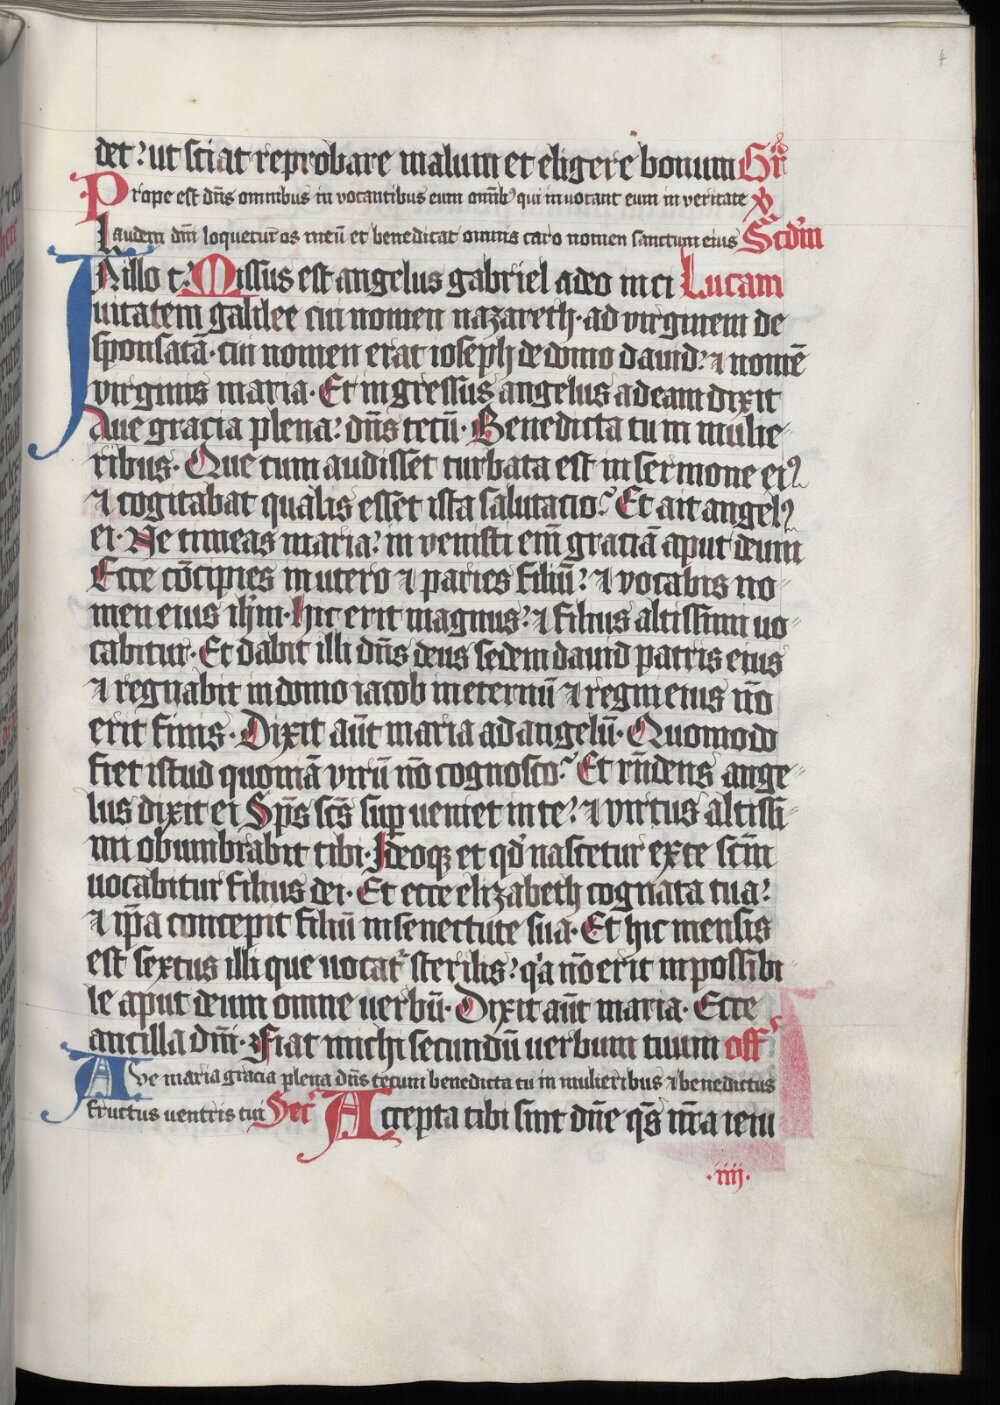 4
det? ut sciat reprobare malum et eligere bonum Gr̄
Prope est dn̄s omnibus in vocantibus eum omīb᷒ qui invocant eum in veritate v̄
Laudem dn̄i loquetur os meū et benedicat omnis caro nomen sanctum eius Scd'm
In illo t: Missus est angelus gabriel a deo in ci Lucam
uitatem galilee cui nomen nazareth· ad virginem de
sponsatā· cui nomen erat ioseph de domo dauid: ⁊ nomē
virginis maria· Et ingressus angelus ad eam dixit
Aue gracia plena: dn̄s tecū· Benedicta tu in mulie-
ribus· Que cum audisset turbata est in sermone ei᷒
⁊ cogitabat qualis esset ista salutacio? Et ait angel᷒
ei· Ne timeas maria: in venisti em̄ graciā aput deum
Ecce cōcipies in utero ⁊ paries filiū: ⁊ vocabis no-
men eius ih̄m· hic erit magnus: ⁊ filius altissimi uo-
cabitur· Et dabit illi dn̄s deus sedem dauid patris eius
⁊ regnabit in domo iacob in eternū ⁊ regni eius nō
erit finis· Dixit aūt maria ad angelū· Quomodo
fiet istud quoniā virū nō cognosco? Et rn̄dens ange-
lus dixit ei Sp̄s sc̄s sup̱ ueniet in te: ⁊ virtus altissi-
mi obumbrabit tibi· Ideoqꝫ et qd' nascetur ex te sc̄m
uocabitur filius dei· Et ecce elizabeth cognata tua:
⁊ ip̄a concepit filiū in senectute sua· Et hic mensis
est sextus illi que uocat᷑ sterilis: q'a nō erit inpossibi-
le aput deum omne uerbū· Dixit aūt maria· Ecce
ancilla dn̄i· Fiat michi secundū uerbum tuum off̄
Ave maria gracia plena dn̄s tecum benedicta tu in mulieribus ⁊ benedictus
fructus uentris tui Secr̄ Accepta tibi sint dn̄e q̄s n̄ra ieiu
·iiij·